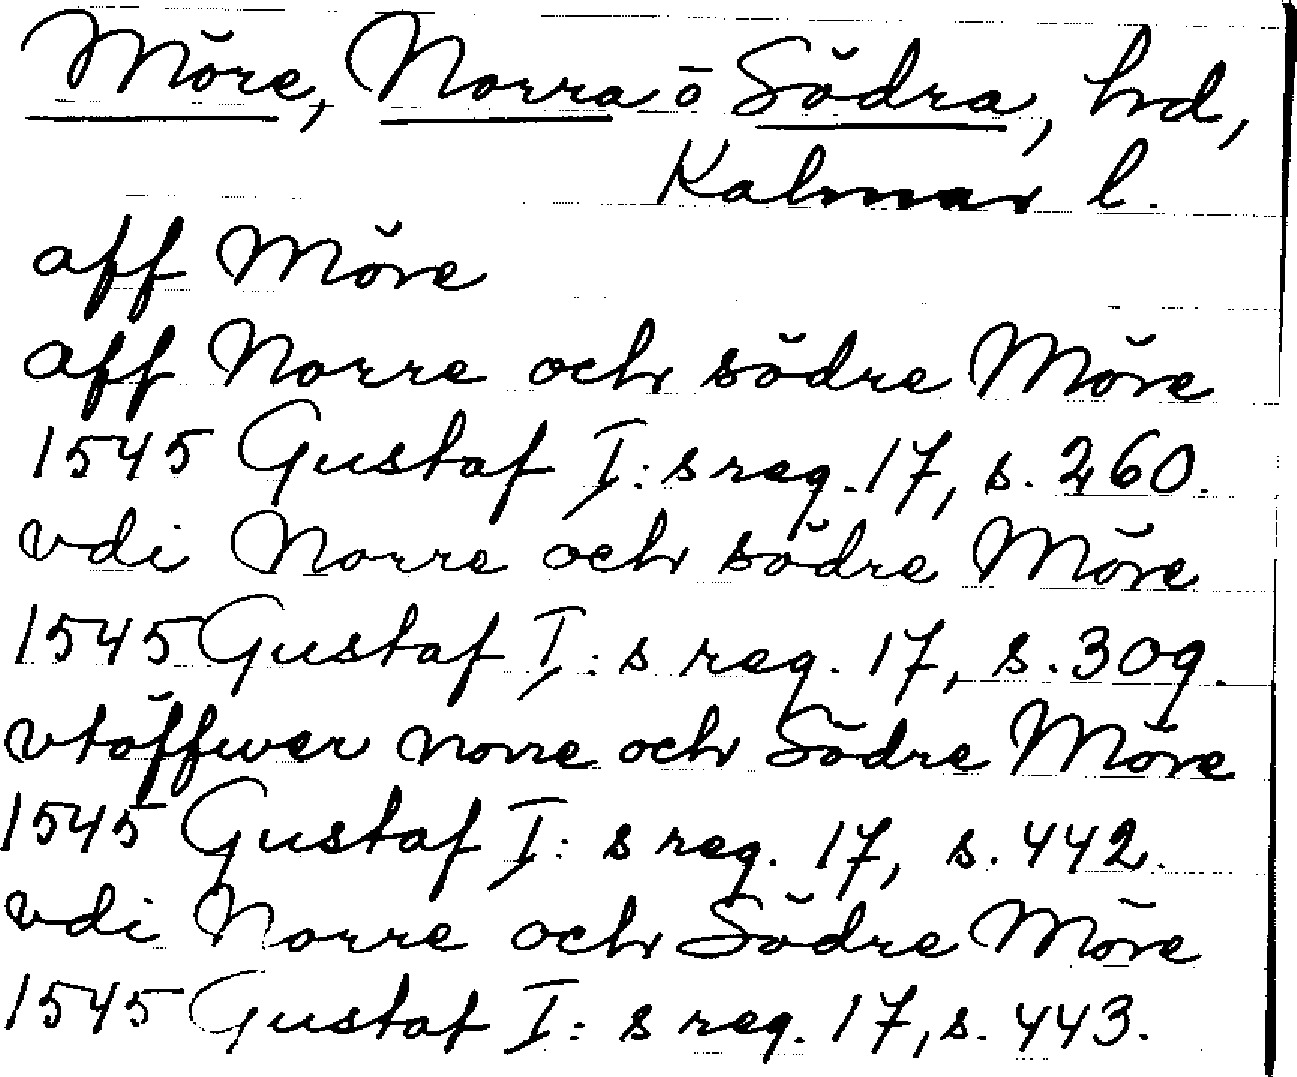 Möre, Norra o Södra, hd,
Kalmar l.
aff Möre
aff Norre och södre Möre
1545 Gustaf I:s reg. 17, s. 260.
vdi Norre och södre Möre
1545 Gustaf I:s reg. 17, s. 309.
vtöffwer norre och Södre Möre
1545 Gustaf I:s reg. 17, s. 442.
vdi Norre och Södre Möre
1545 Gustaf I:s reg. 17, s. 443.